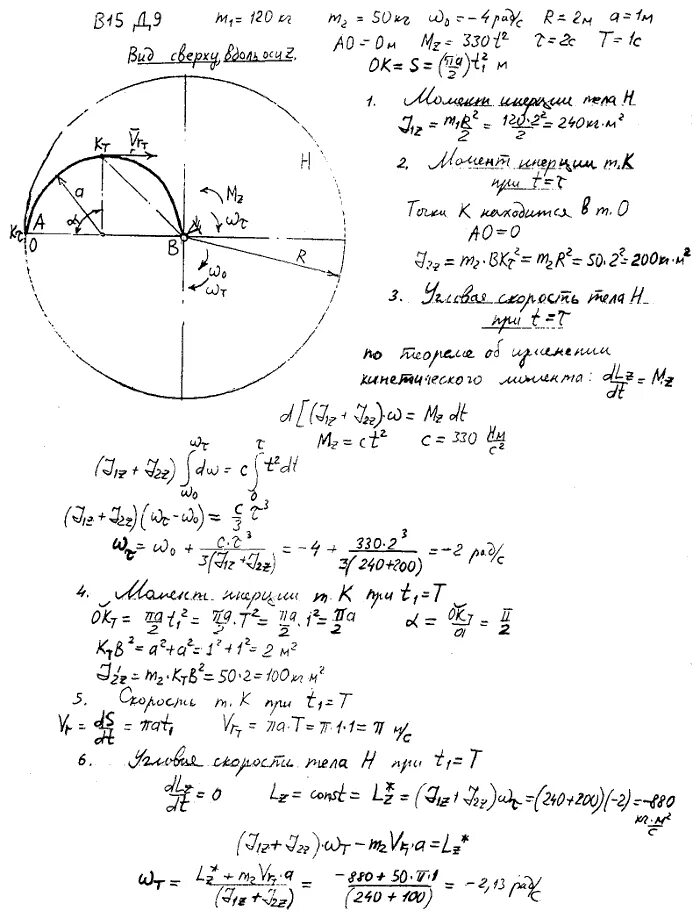 В15 Д9 m₁=120кг m₂=50кг ω₀=-4рад/с R=2м a=1м
AO=0м M_z=330t² τ=2с T=1с
OK=S=(πa/2)t₁² м
Вид сверху, вдоль оси Z.
K_T V_rT
a H
α M_z
A ω_τ
K_τ O B
ω₀ R
ω_T
1. Момент инерции тела Н
J₁z = m₁R²/2 = 120·2²/2 = 240кг·м²
2. Момент инерции т.К
при t=τ
Точка К находится в т.О
AO=0
J₂z = m₂·BK_τ² = m₂R² = 50·2² = 200кг·м²
3. Угловая скорость тела Н
при t=τ
по теореме об изменении
кинетического момента: dL_z/dt = M_z
d[(J₁z + J₂z)·ω = M_z dt
M_z = ct² c = 330 Нм/с²
(J₁z + J₂z) ∫_ω₀^ω_τ dω = c ∫_0^τ t²dt
(J₁z + J₂z)(ω_τ - ω₀) = c/3 τ³
ω_τ = ω₀ + c·τ³/3(J₁z + J₂z) = -4 + 330·2³/3(240+200) = -2 рад/с
4. Момент инерции т. К при t₁=T
OK_T = πa/2 t₁² = πa/2·T² = πa/2·1² = πa/2 α = OK_T/a = π/2
K_TB² = a²+a² = 1²+1² = 2 м²
J₂z' = m₂·K_TB² = 50·2 = 100кг·м²
5. Скорость т. К при t₁=T
V_r = dS/dt = πat₁ V_rT = πa·T = π·1·1 = π м/с
6. Угловая скорости тела Н при t₁=T
dL_z/dt = 0 L_z = const = L_z* = (J₁z + J₂z)ω_τ = (240+200)(-2) = -880
кг·м²/с
(J₁z + J₂z)·ω_T - m₂V_rT·a = L_z*
ω_T = L_z* + m₂V_rT·a/(J₁z + J₂z) = -880 + 50·π·1/(240+100) = -2,13 рад/с